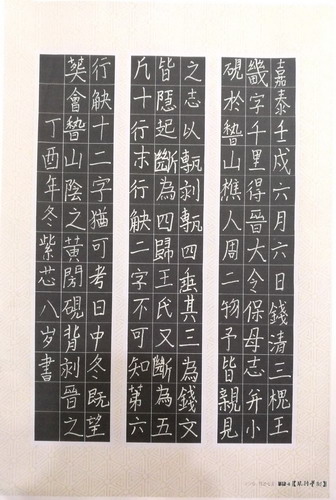 嘉泰壬戌六月六日錢清三槐王
畿字千里得晉大令保母志并小
硯於稽山樵人周二物予皆親見
之志以甎刻甎四垂其三為錢文
皆隱起斷為四歸王氏又斷為五
凡十行末行缺二字不可知第六
行缺十二字猶可考曰中冬既望
葬會稽山陰之黃閍硯背刻晉之
丁酉年冬紫芯八岁書